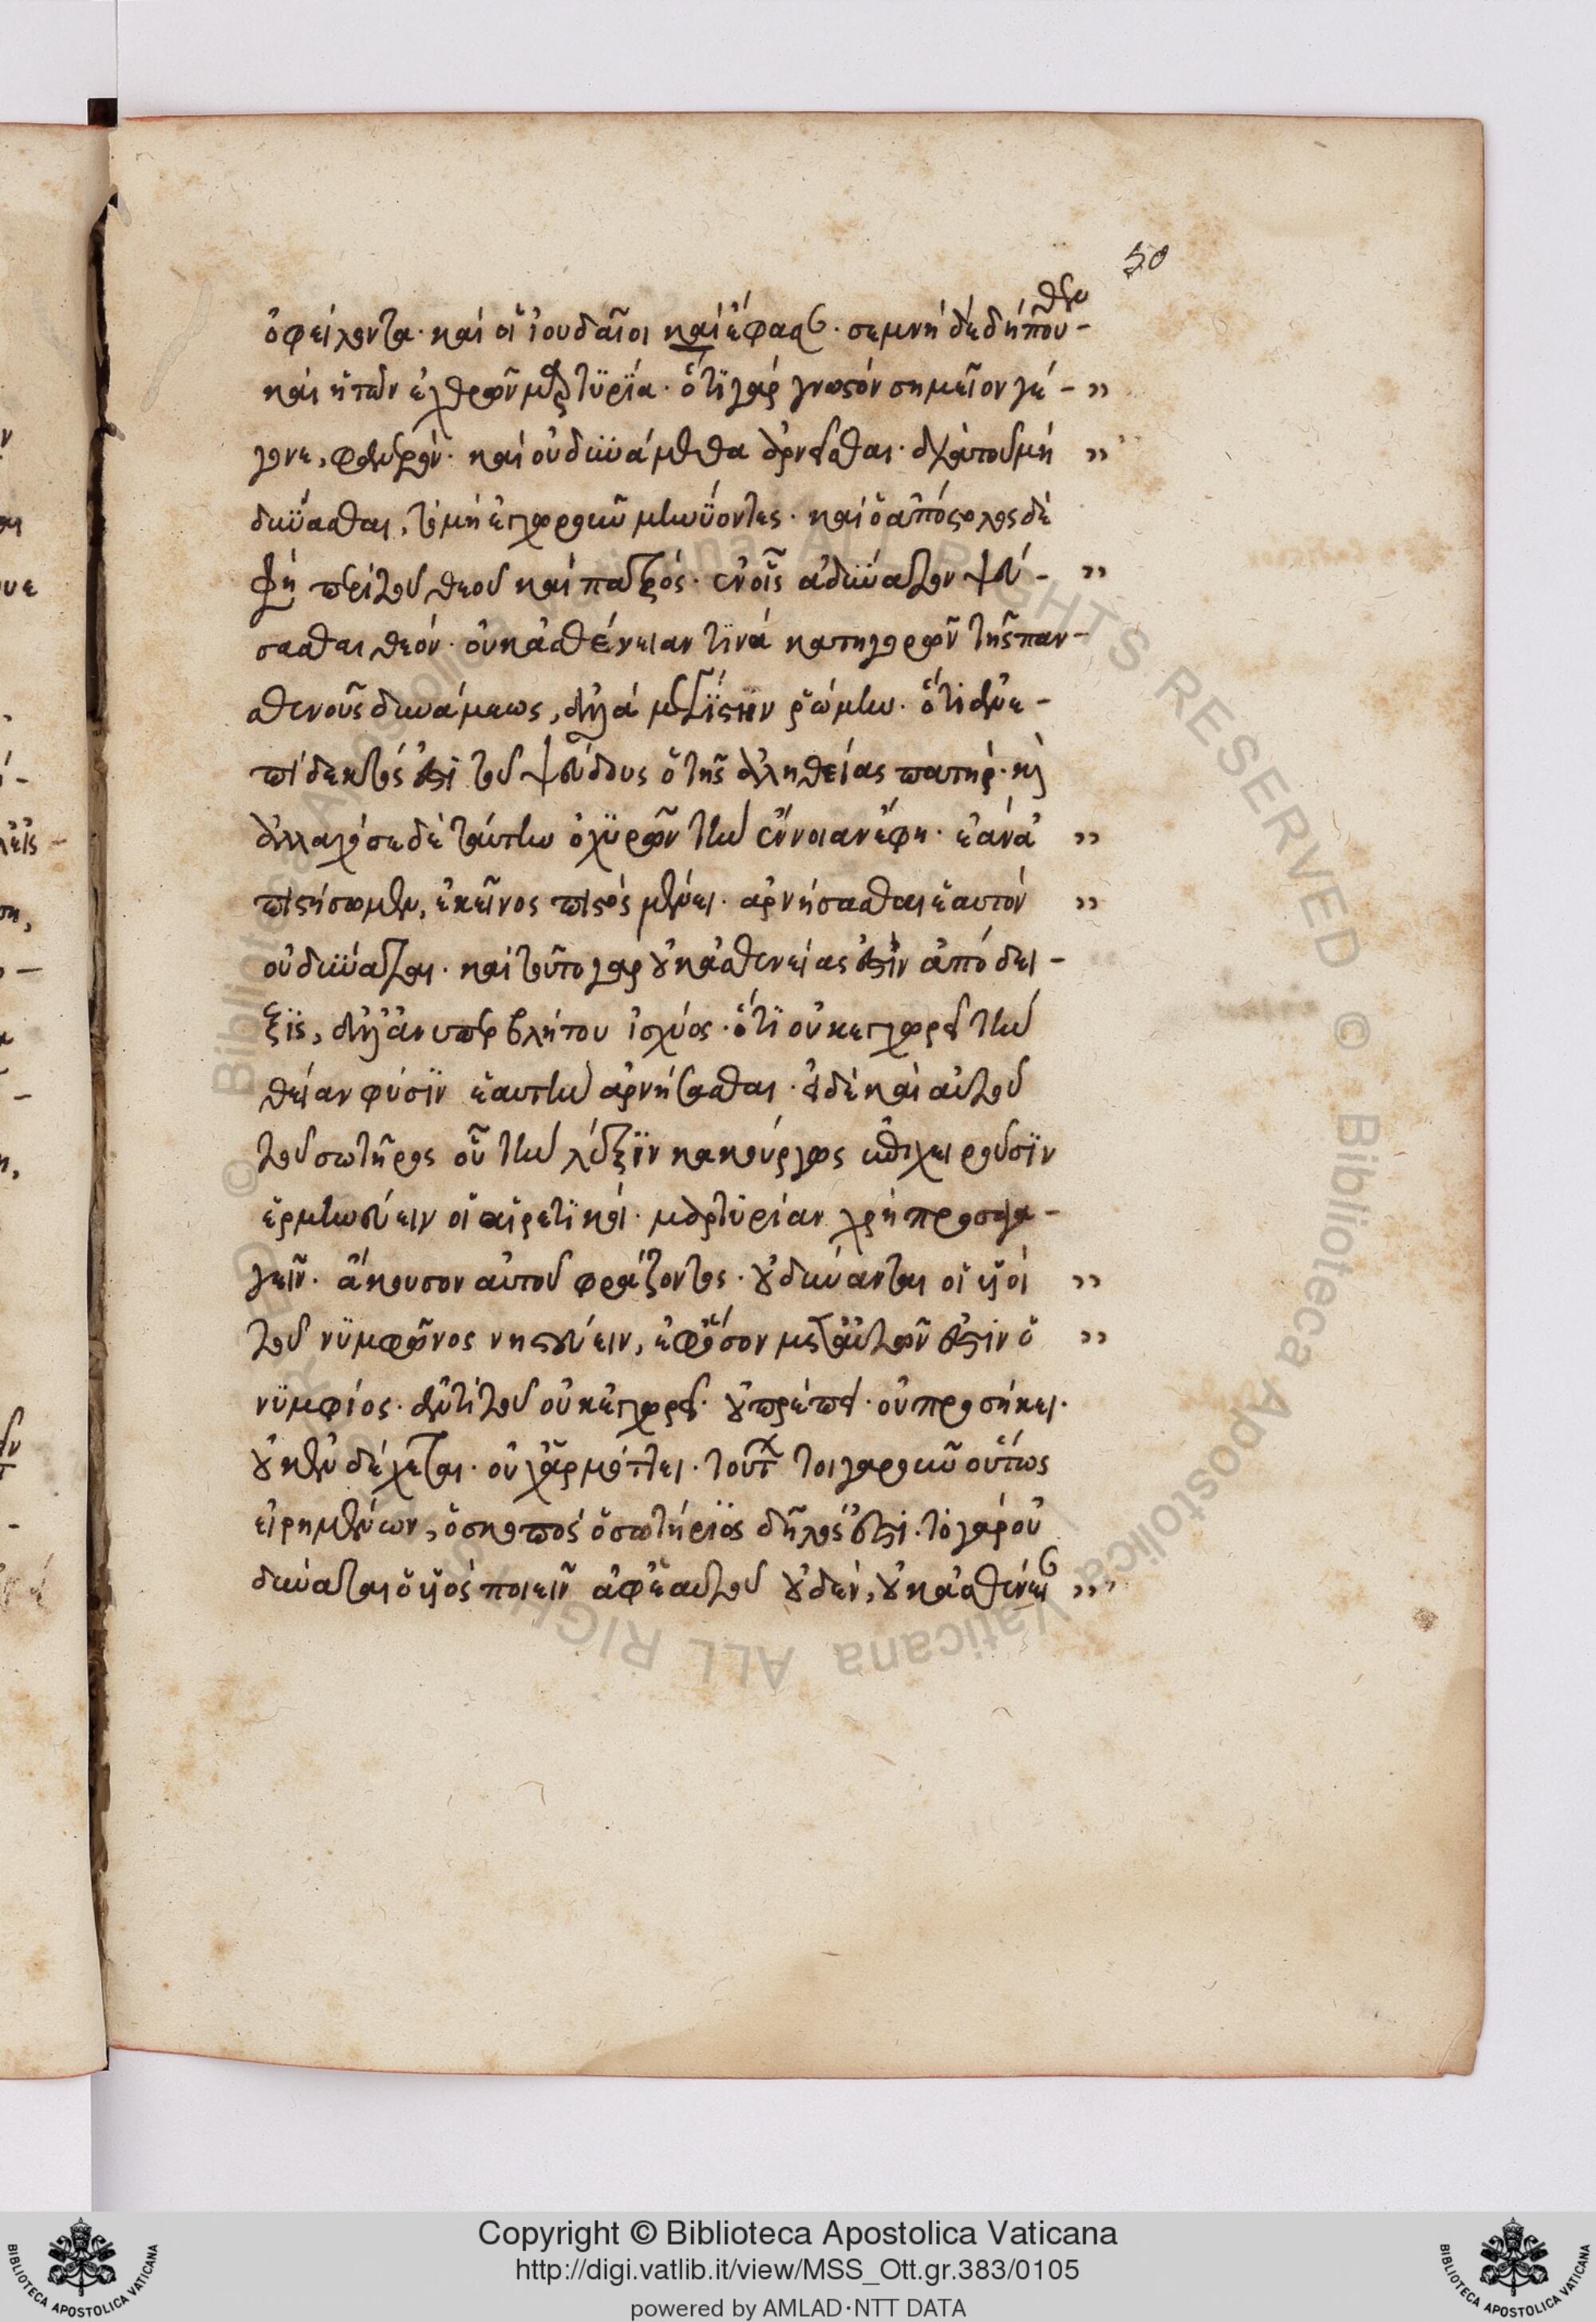 50
ὀφείλοντα· καὶ οἱ ἰουδαῖοι καὶ ἔφασ· σεμνὴ δὲ δήπουθεν-
καὶ ἡ τῶν ἐχθρῶν μαρτυρία· ὅτι γὰρ γνωστὸν σημεῖον γέ-
γονε, φανερόν· καὶ οὐ δυνάμεθα ἀρνεῖσθαι· ἀντὶ τοῦ μὴ
δύνασθαι, τὸ μὴ ἐγχωρεῖν μηνύοντες· καὶ ὁ ἀπόστολος δὲ
φη περὶ τοῦ θεοῦ καὶ πατρός· ἐν οἷς ἀδύνατον ψεύ-
σασθαι θεόν· οὐκ ἀσθένειαν τινὰ κατηγορῶν τῆς παν-
σθενοῦς δυνάμεως, ἀλλὰ μεγίστην ῥώμην· ὅτι ἀνε-
πίδεκτός ἐστι τοῦ ψεύδους ὁ τῆς ἀληθείας πατήρ· καὶ
ἀλλαχόσε δὲ ταύτην ὀχυρῶν τὴν ἔννοιαν ἔφη· ἐὰν ἀ
πιστήσωμεν, ἐκεῖνος πιστὸς μένει· ἀρνήσασθαι ἑαυτὸν
οὐ δύναται· καὶ τοῦτο γὰρ οὐκ ἀσθενείας ἐστὶν ἀπόδει-
ξις, ἀλλ' ἀνυπερβλήτου ἰσχύος· ὅτι οὐκ ἐγχωρεῖ τὴν
θείαν φύσιν ἑαυτὴν ἀρνήσασθαι· εἰ δὲ καὶ αὐτοῦ
τοῦ σωτῆρος οὗ τὴν λέξιν κακούργως ἐπιχειροῦσιν
ἑρμηνεύειν οἱ αἱρετικοί· μαρτυρίαν χρὴ προσαγα-
γεῖν· ἄκουσον αὐτοῦ φράζοντος· οὐ δύνανται οἱ υἱοὶ
τοῦ νυμφῶνος νηστεύειν, ἐφ' ὅσον μετ' αὐτῶν ἐστὶν ὁ
νυμφίος· ἀντὶ τοῦ οὐκ ἐγχωρεῖ· οὐ πρέπει· οὐ προσήκει·
οὐκ ἐνδέχεται· οὐχ ἁρμόττει· τούτων τοιγαροῦν οὕτως
εἰρημένων, ὁ σκοπὸς ὁ σωτήριος δῆλός ἐστι· τὸ γὰρ οὐ
δύναται ὁ υἱὸς ποιεῖν ἀφ' ἑαυτοῦ οὐδὲν, οὐκ ἀσθένει
Copyright © Biblioteca Apostolica Vaticana
http://digi.vatlib.it/view/MSS_Ott.gr.383/0105
powered by AMLAD·NTT DATA